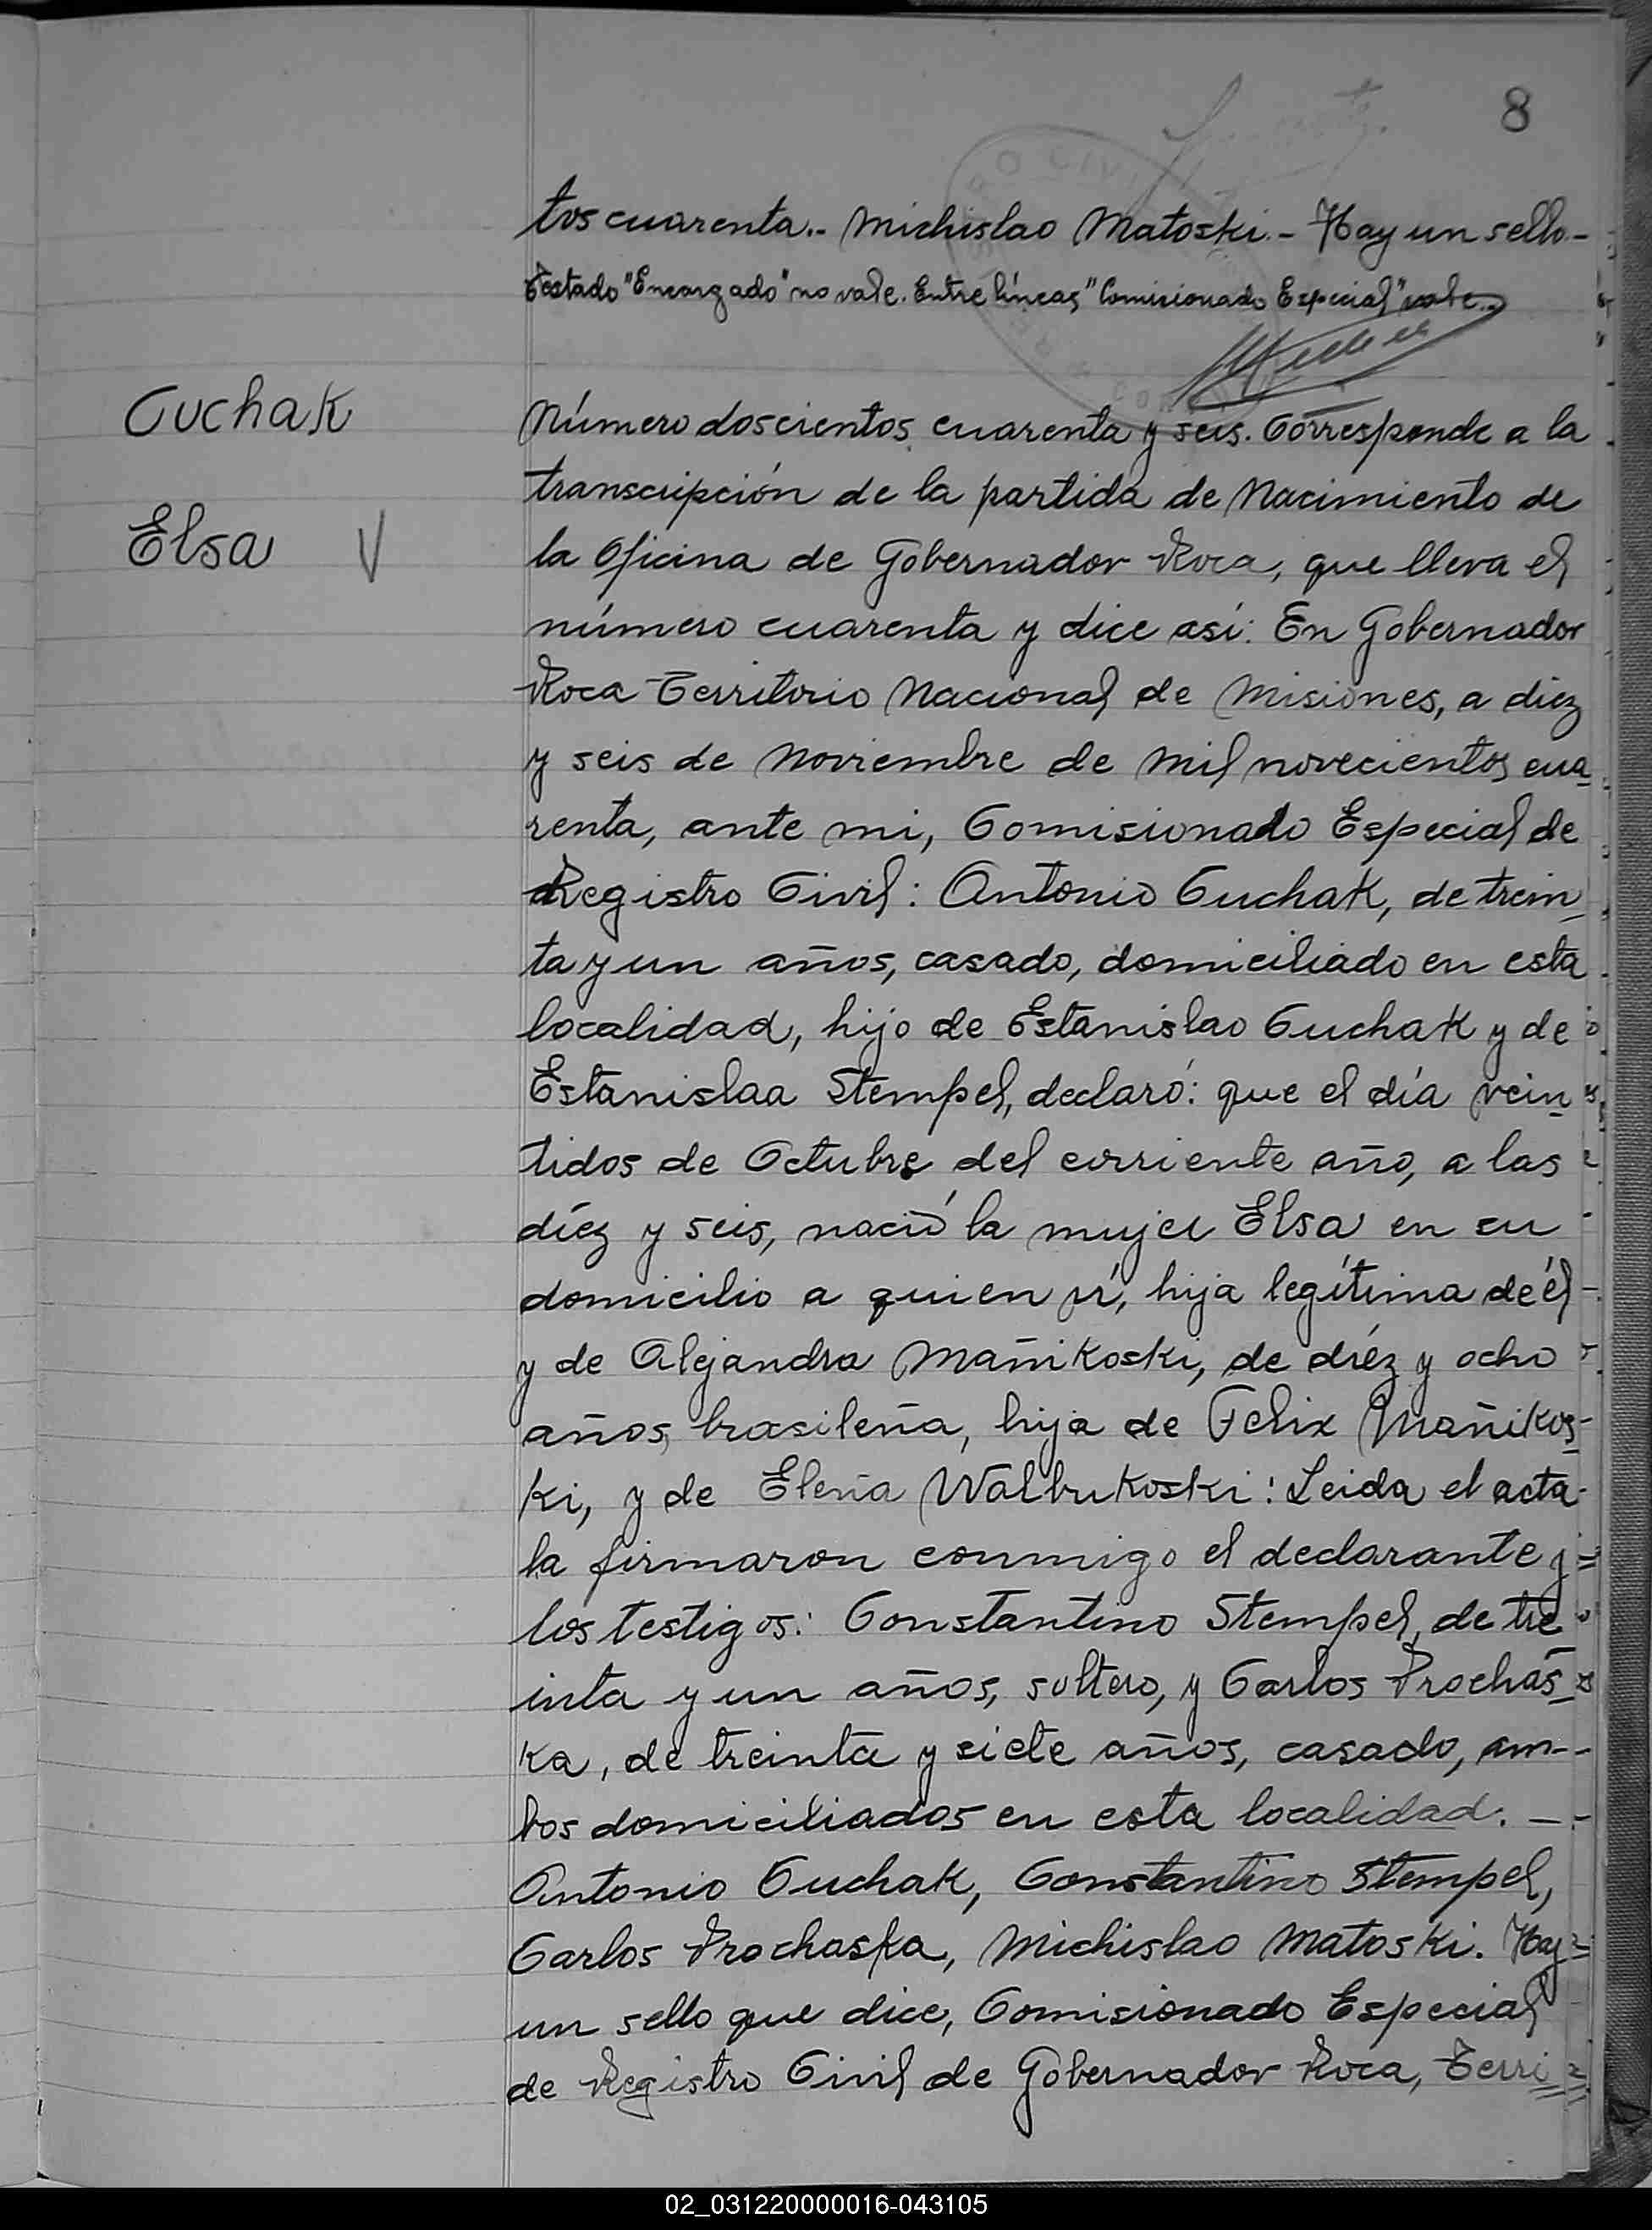 8
tos cuarenta.- Michislao Matoski.- Hay un sello.-
Testado "Encargado" no vale. Entre líneas, "Comisionado Especial" vale.-
Cuchak
Elsa V
Número doscientos cuarenta y seis. Corresponde a la
transcripción de la partida de Nacimiento de
la Oficina de Gobernador Roca, que lleva el
número cuarenta y dice así: En Gobernador
Roca Territorio Nacional de Misiones, a diez
y seis de Noviembre de mil novecientos cua
renta, ante mi, Comisionado Especial de
Registro Civil: Antonio Cuchak, de trein
ta y un años, casado, domiciliado en esta
localidad, hijo de Estanislao Cuchak y de
Estanislaa Stempel, declaró: que el día vein
tidos de Octubre del corriente año, a las
diez y seis, nació la mujer Elsa en su
domicilio a quien ví, hija legítima de él
y de Alejandra Mañikoski, de diéz y ocho
años, brasileña, hija de Felix Mañikos
ki, y de Elena Walbukoski: Leida el acta
la firmaron conmigo el declarante y
los testigos: Constantino Stempel, de tre
inta y un años, soltero, y Carlos Prochás
ka, de treinta y siete años, casado, am-
bos domiciliados en esta localidad. —
Antonio Cuchak, Constantino Stempel,
Carlos Prochaska, Michislao Matoski. Hay
un sello que dice, Comisionado Especial
de Registro Civil de Gobernador Roca, Terri
02_031220000016-043105